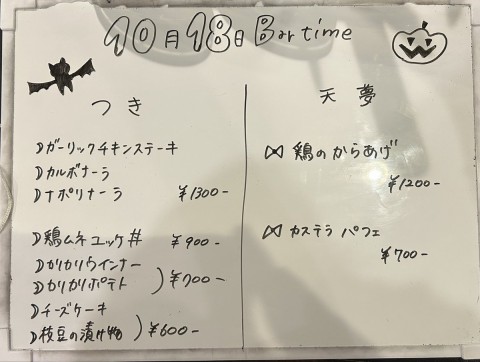 10月18日 Bar time
つき
ガーリックチキンステーキ
カルボナーラ
ナポリナーラ ¥1300-
鶏ムネユッケ丼 ¥900-
カリカリウインナー
カリカリポテト ¥700-
チーズケーキ
枝豆の漬け物 ¥600-
天夢
鶏のからあげ
¥1200-
カステラ パフェ
¥700-